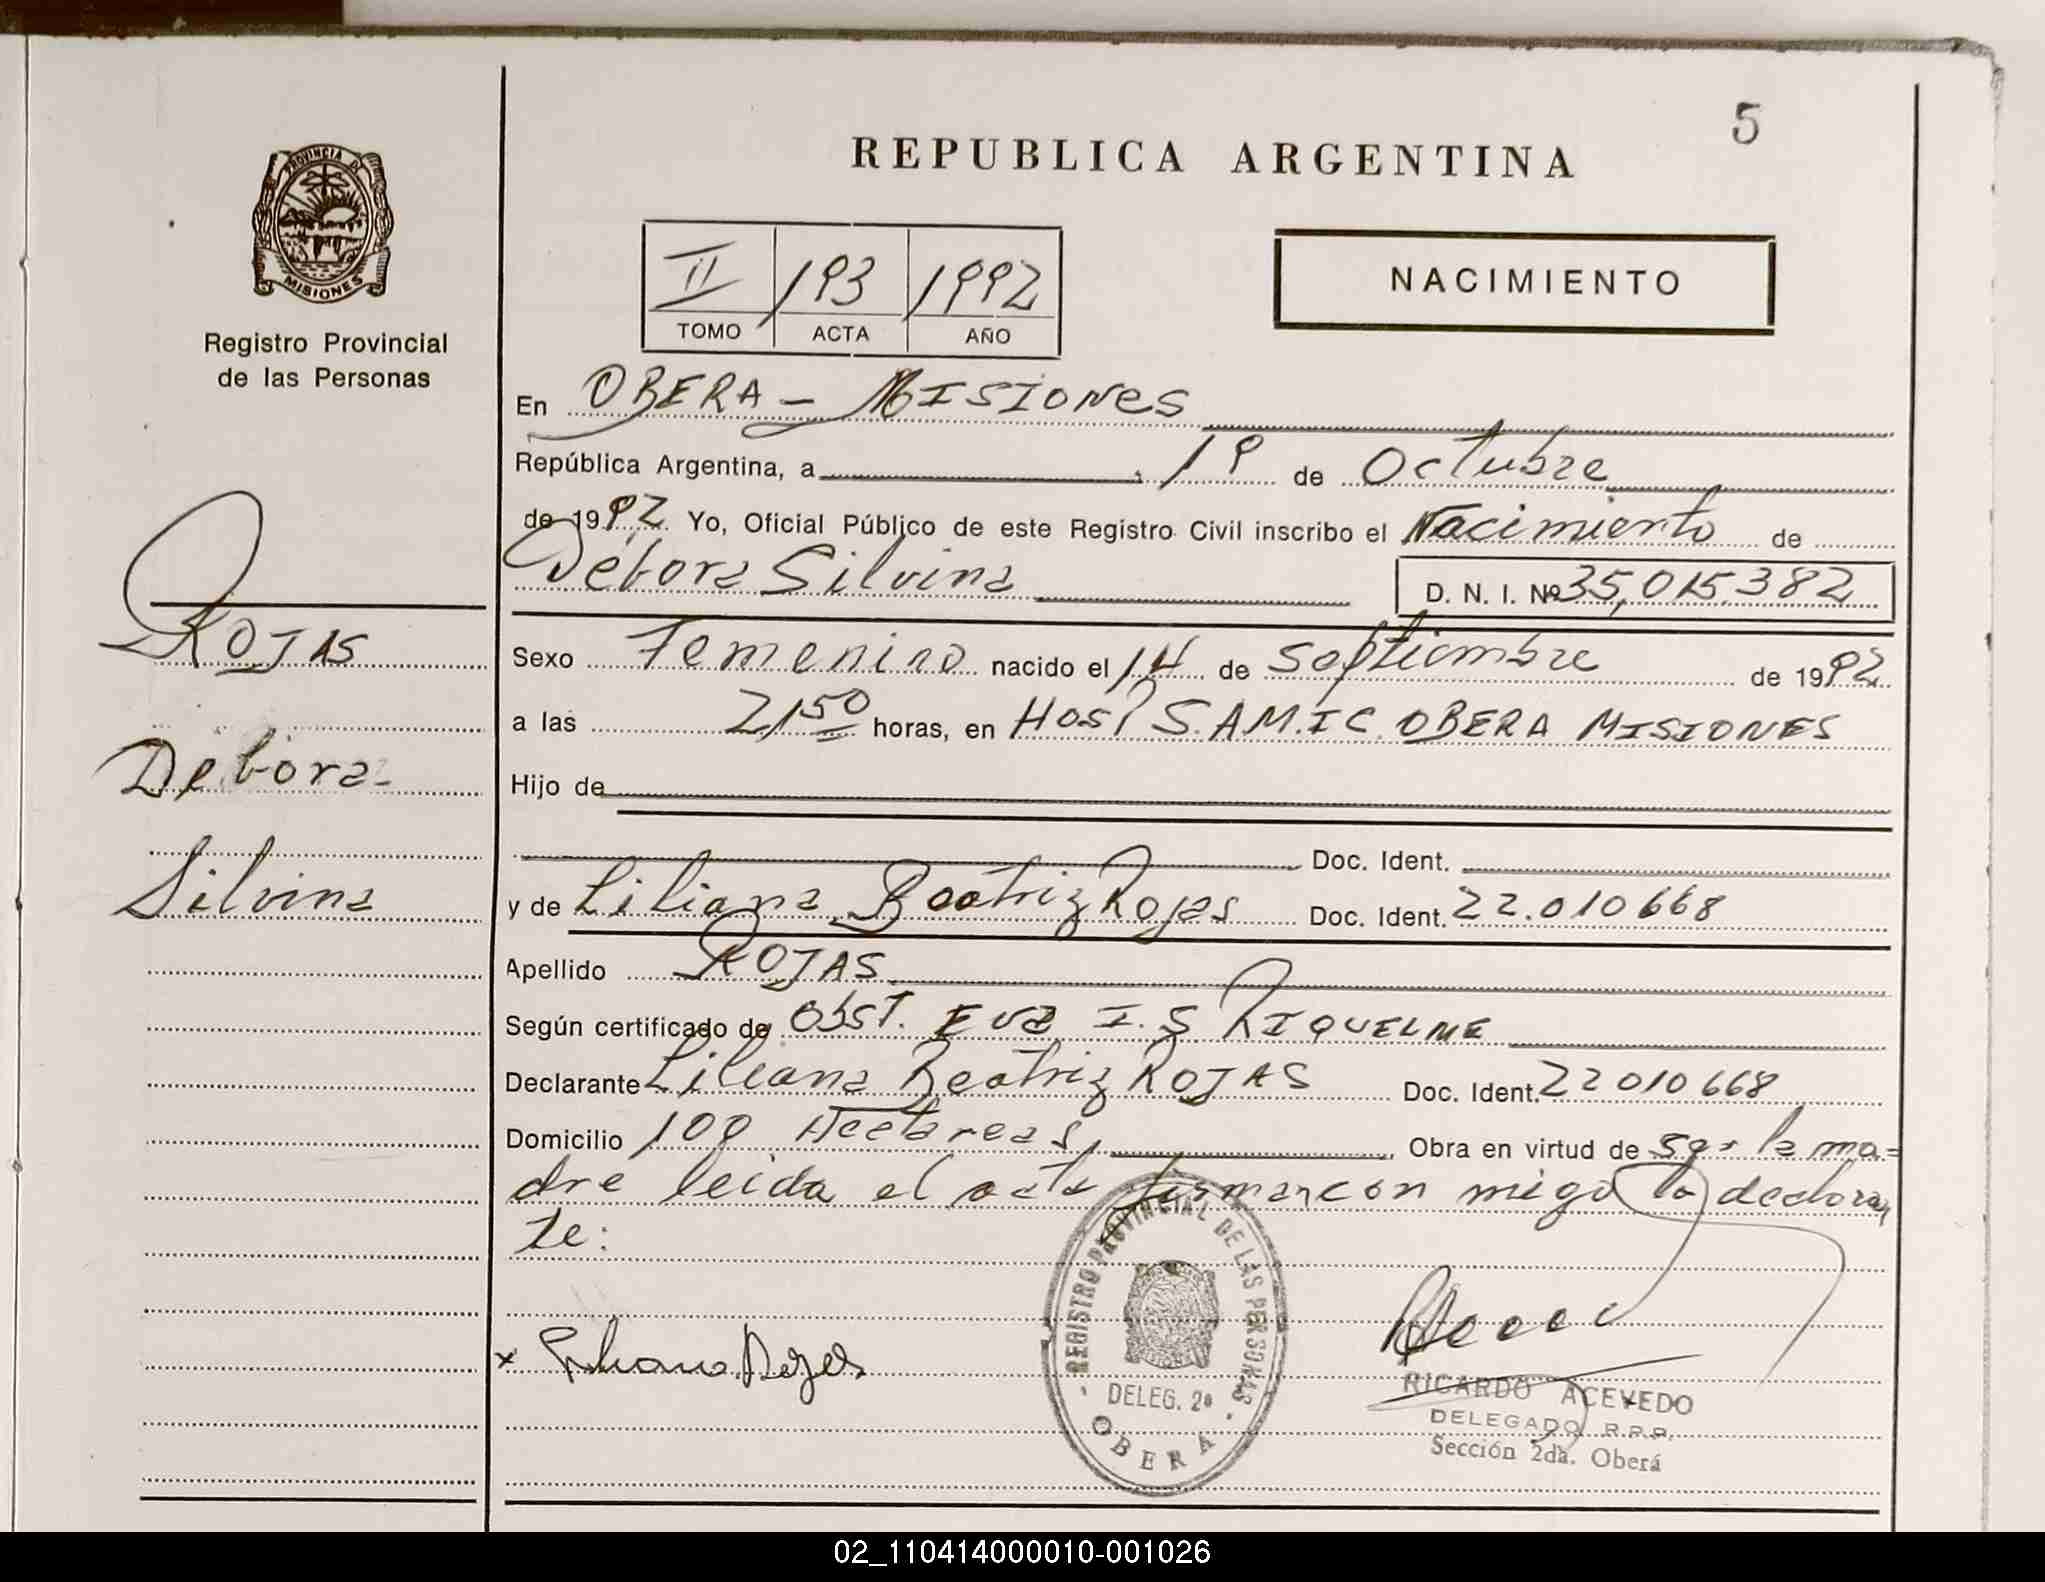 5
REPUBLICA ARGENTINA
PROVINCIA DE
MISIONES
Registro Provincial
de las Personas
II 193 1992
TOMO ACTA AÑO
NACIMIENTO
En OBERA - MISIONES
República Argentina, a , 19 de Octubre
de 1992 Yo, Oficial Público de este Registro Civil inscribo el Nacimiento de
Débora Silvina D. N. I. Nº 35,015.382
ROJAS
Sexo Femenino nacido el 14 de Septiembre de 1992
a las 21 50 horas, en HOSP S.AM.IC. OBERA MISIONES
Debora
Hijo de
Doc. Ident.
Silvina
y de Liliana Beatriz Rojas Doc. Ident. 22.010668
Apellido ROJAS
Según certificado de Obst. Eva I.S RIQUELME
Declarante Liliana Beatriz ROJAS Doc. Ident. 22010668
Domicilio 100 Hectareas, Obra en virtud de ser la ma=
dre leida el acta firman con migo la declaran
te:
x Liliana Rojas
REGISTRO PROVINCIAL DE LAS PERSONAS
MISIONES
DELEG. 2ª
OBERA
RICARDO ACEVEDO
DELEGADO R.P.P.
Sección 2da. Oberá
02_110414000010-001026